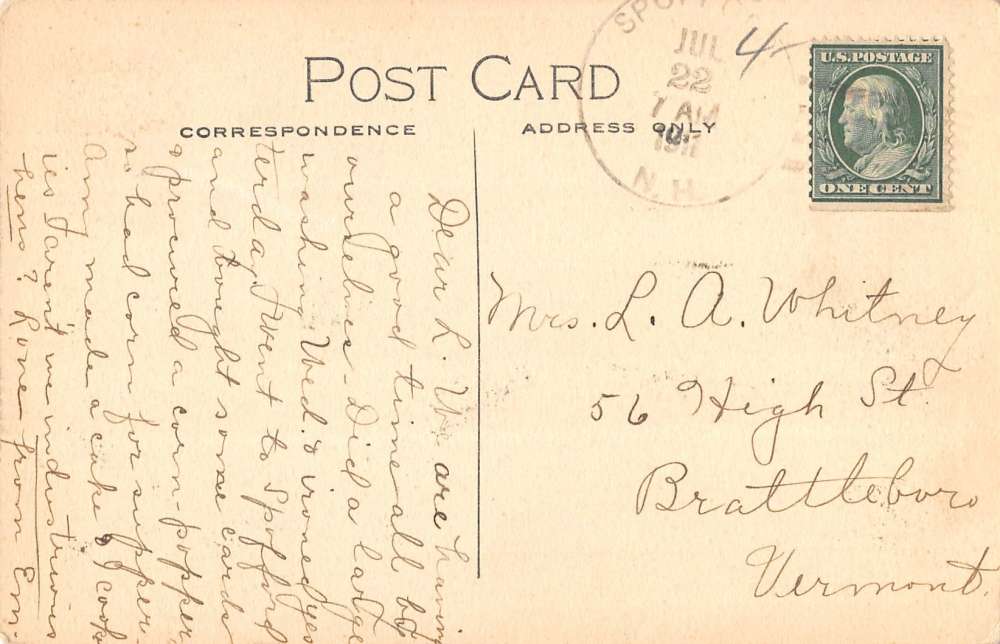 POST CARD
CORRESPONDENCE
ADDRESS ONLY
JUL
22
7 AM
1911
N.H.
4
U.S. POSTAGE
ONE CENT
Mrs. L. A. Whitney
56 High St.
Brattleboro
Vermont.
Dear L. We are having
a good time all by
ourselves - Did a large
washing Wed. & ironed yes
terday. I went to Spofford
and bought some cards
& procured a corn-popper,
so had corn for supper.
Amy made a cake &
ies. Aren't we industrious
hens? Love from Em.